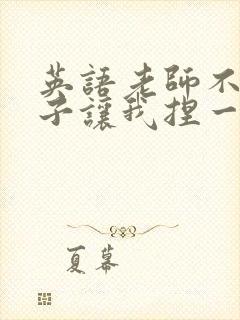 英語老師不
子讓我捏一
夏幕